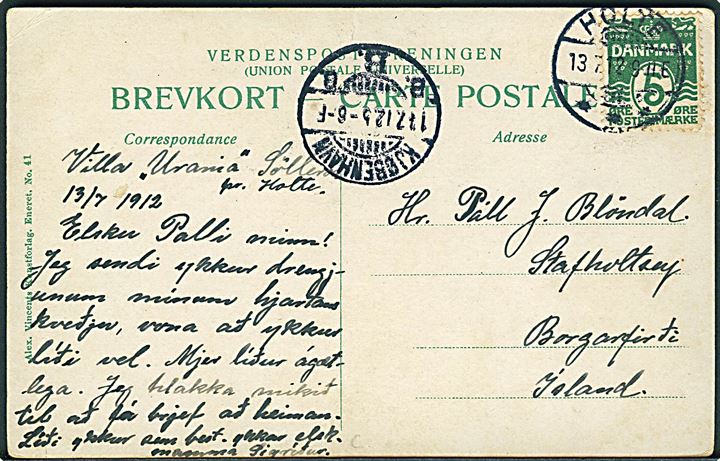 VERDENSPOSTFORENINGEN
(UNION POSTALE UNIVERSELLE)
BREVKORT - CARTE POSTALE
Correspondance
Adresse
HOLTE
13.7.12 9
DANMARK
5
ØRE ØRE
POSTFRIMÆRKE
KJØBENHAVN
B.
13.7.12 5-6 F
Alex. Vincents Kunstforlag. Eneret. No. 41
Villa "Urania" Sölleröd
pr. Holte.
13/7 1912
Elsku Palli minn!
Jeg sendi ykkur drengj-
unum mínum hjartans
kveðju, vona að ykkur
líði vel. Mjer líður ágæt-
lega. Jeg hlakka mikið
til að fá brjef að heiman.
Líði ykkur sem best. ykkar elsk.
mamma Sigríður.
Hr. Páll J. Blöndal.
Stafholtsey
Borgarfirði
Ísland.